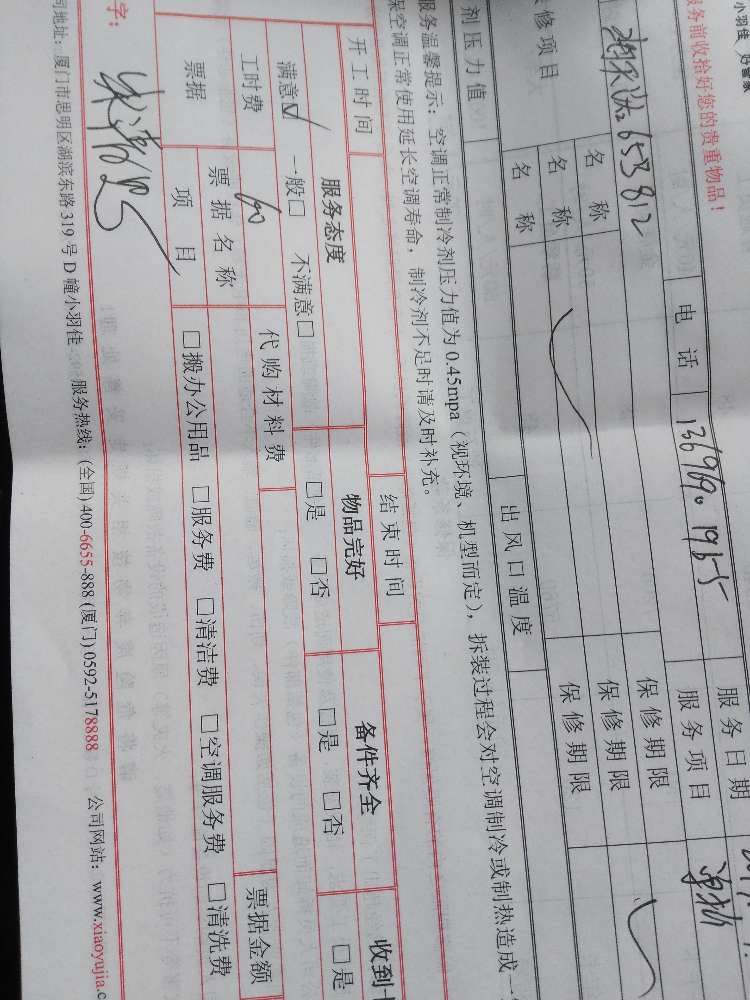 小羽佳 好管家
服务前收拾好您的贵重物品!
服务日期
653812 电话 13696901965 服务项目 单拆
修项目 名称 保修期限
名称 保修期限
名称 保修期限
剂压力值 出风口温度
服务温馨提示:空调正常制冷剂压力值为0.45mpa(视环境、机型而定),拆装过程会对空调制冷或制热造成一
保空调正常使用延长空调寿命,制冷剂不足时请及时补充。
开工时间 结束时间
服务态度 物品完好 备件齐全 收到
满意☑ 一般□ 不满意□ □是 □否 □是 □否 □是
工时费 60 代购材料费
票据 票据名称 票据金额
项目 □搬办公用品 □服务费 □清洁费 □空调服务费 □清洗费
字:
司地址:厦门市思明区湖滨东路319号D幢小羽佳 服务热线:(全国)400-6655-888 (厦门)0592-5178888 公司网站:www.xiaoyujia.c